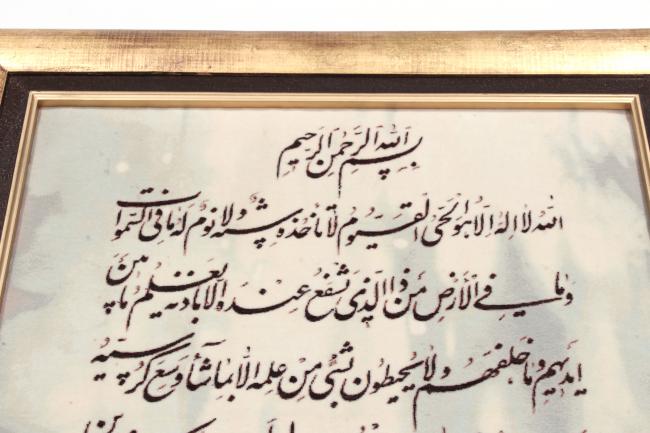 بسم الله الرحمن الرحیم
الله لا اله الا هو الحی القیوم لا تاخذه سنه و لا نوم له ما فی السموات
و ما فی الارض من ذا الذی یشفع عنده الا باذنه یعلم ما بین
ایدیهم و ما خلفهم و لا یحیطون بشی من علمه الا بما شاء وسع کرسیه